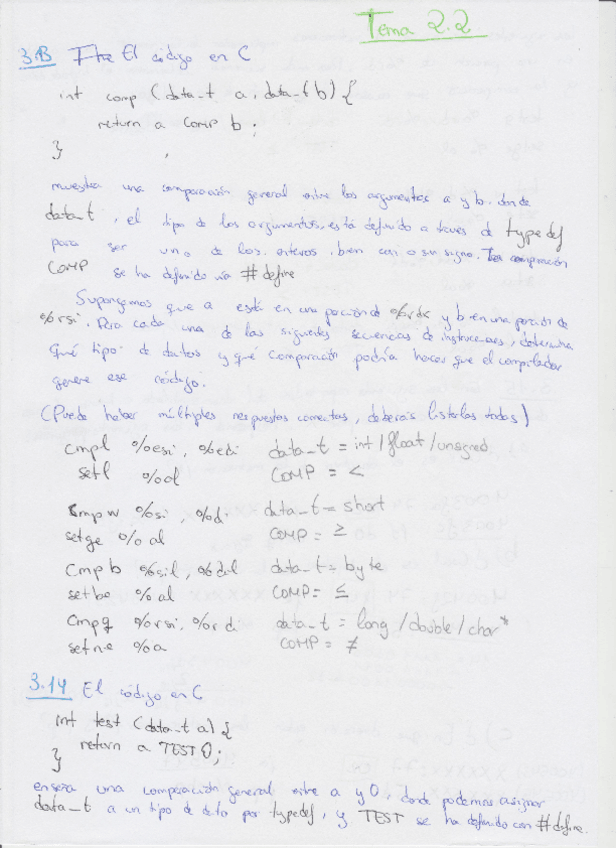 Tema 2.2
3.13 El código en C
int comp (data_t a, data_t b) {
return a COMP b;
}
muestra una comparación general entre los argumentos a y b. donde
data_t, el tipo de los argumentos, está definido a través de typedef
para ser uno de los enteros, bien con o sin signo. La comparación
COMP se ha definido vía #define
Supongamos que a está en una porción de %rdx y b en una porción de
%rsi. Para cada una de las siguientes secuencias de instrucciones, determina
qué tipo de datos y qué comparación podría hacer que el compilador
genere ese código.
(Puede haber múltiples respuestas correctas, deberás listarlas todas)
cmpl %esi, %edi data_t = int / float / unsigned
setl %al COMP = <
cmpw %si, %di data_t = short
setge %al COMP = ≥
cmpb %sil, %dil data_t = byte
setbe %al COMP = ≤
cmpq %rsi, %rdi data_t = long / double / char*
setne %a COMP = ≠
3.14 El código en C
int test (data_t a) {
return a TEST 0;
}
enseña una comparación general entre a y 0, donde podemos asignar
data_t a un tipo de dato por typedef, y TEST se ha definido con #define.